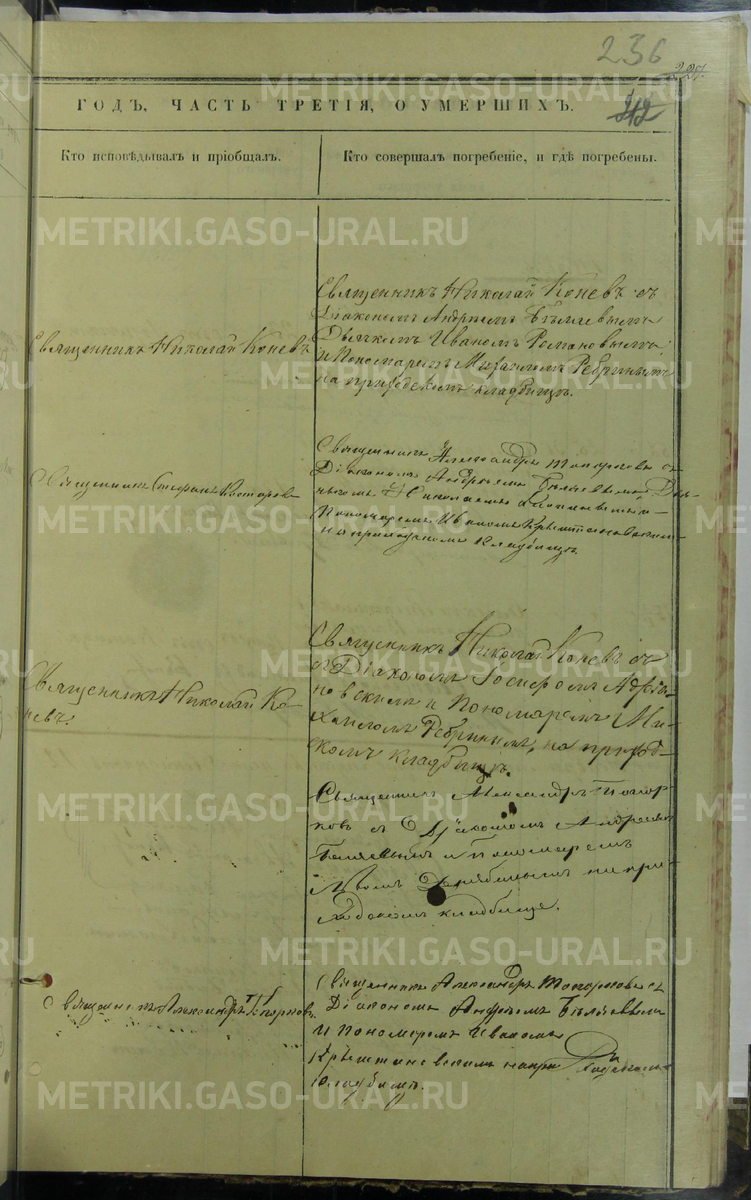 236
227.
212
ГОДЪ, ЧАСТЬ ТРЕТІЯ, О УМЕРШИХЪ.
Кто исповѣдывалъ и пріобщалъ.
Кто совершалъ погребеніе, и гдѣ погребены.
Священникъ Николай Коневъ
Священникъ Николай Коневъ съ
Діакономъ Андреемъ Бѣляевымъ
Дьячкомъ Иваномъ Романовымъ
и Пономаремъ Михаиломъ Ребринымъ
на приходскомъ кладбищѣ.
Священникъ Стефанъ
Священникъ Александръ Топорковъ съ
Діакономъ Андреемъ Бѣляевымъ Дья-
чкомъ Николаемъ
Пономаремъ Иваномъ Крыштановскимъ
на приходскомъ кладбищѣ.
Священникъ Николай Ко-
невъ.
Священникъ Николай Коневъ съ
съ Діакономъ Іосифомъ
и Пономаремъ Ми-
хаиломъ Ребринымъ, на приход-
скомъ кладбищѣ.
Священникъ Александръ Топор-
ковъ съ Діакономъ Андреемъ
Беляевымъ и Пономаремъ
на при-
ходскомъ кладбище.
Священникъ Александръ Топорковъ
Священникъ Александръ Топорковъ съ
Діакономъ Андреемъ Бѣляевымъ
и Пономаремъ Иваномъ
Крыштановскимъ на приходскомъ
кладбищѣ.
METRIKI.GASO-URAL.RU